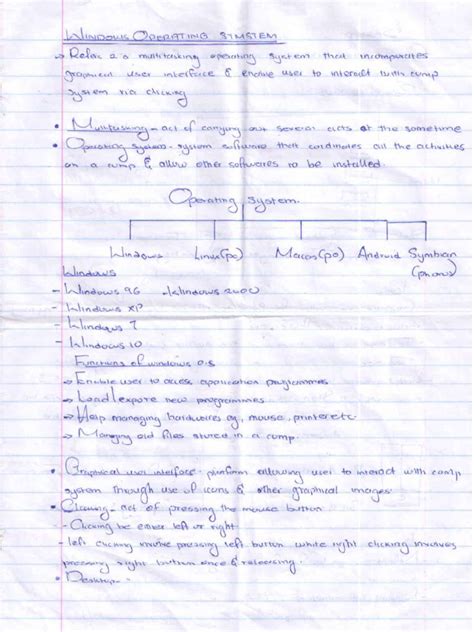 WINDOWS OPERATING SYSTEM
→ Refers 2 a multitasking operating system that incorporates
graphical user interface & enable user to interact with comp
system via clicking
• Multitasking - act of carrying out several acts at the sametime
• Operating system - system software that cordinates all the activities
on a comp & allow other softwares to be installed.
Operating System
Windows Linux(pc) Macos(pc) Android Symbian
(phones)
Windows
- Windows 96 - Windows 2000
- Windows XP
- Windows 7
- Windows 10
Functions of windows o.s
→ Enable user to access application programmes
→ Load new programmes
→ Help managing hardwares eg, mouse, printer etc
→ Managing old files stored in a comp.
• Graphical user interface - platform allowing user to interact with comp
system through use of icons & other graphical images
• Clicking - act of pressing the mouse button
- Clicking be either left or right
- left clicking involve pressing left button while right clicking involves
pressing right button once & releasing.
• Desktop -